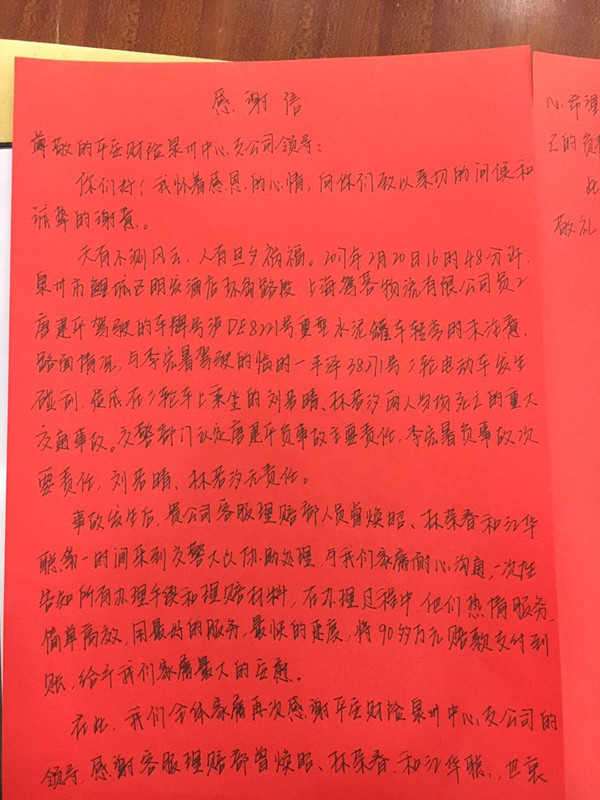 感谢信
尊敬的平安财险泉州中心支公司领导:
你们好!我怀着感恩的心情,向你们致以亲切的问候和
诚挚的谢意。
天有不测风云,人有旦夕祸福。2017年2月20日16时48分许,
泉州市鲤城区明发酒店环岛路段,上海 物流有限公司员工
唐建开驾驶的车牌号沪DE8221号重型水泥罐车转弯时未注意
路面情况,与李宏暑驾驶的临时一泉泽38271号二轮电动车发生
碰刮,造成在二轮车上乘坐的刘若晴、林若汐两人当场死亡的重大
交通事故。交警部门认定唐建开负事故主要责任,李宏暑负事故次
要责任,刘若晴、林若汐无责任。
事故发生后,贵公司客服理赔部人员曾焕昭、林荣春和江华
聪第一时间来到交警大队协助处理,与我们家属耐心沟通,一次性
告知所有办理手续和理赔材料,在办理过程中,他们热情服务,
简单高效,用最好的服务,最快的速度,将90多万元赔款支付到
账,给予我们家属最大的安慰。
在此,我们全体家属再次感谢平安财险泉州中心支公司的
领导,感谢客服理赔部曾焕昭、林荣春、和江华聪,也衷
心希望
的负
此
敬礼